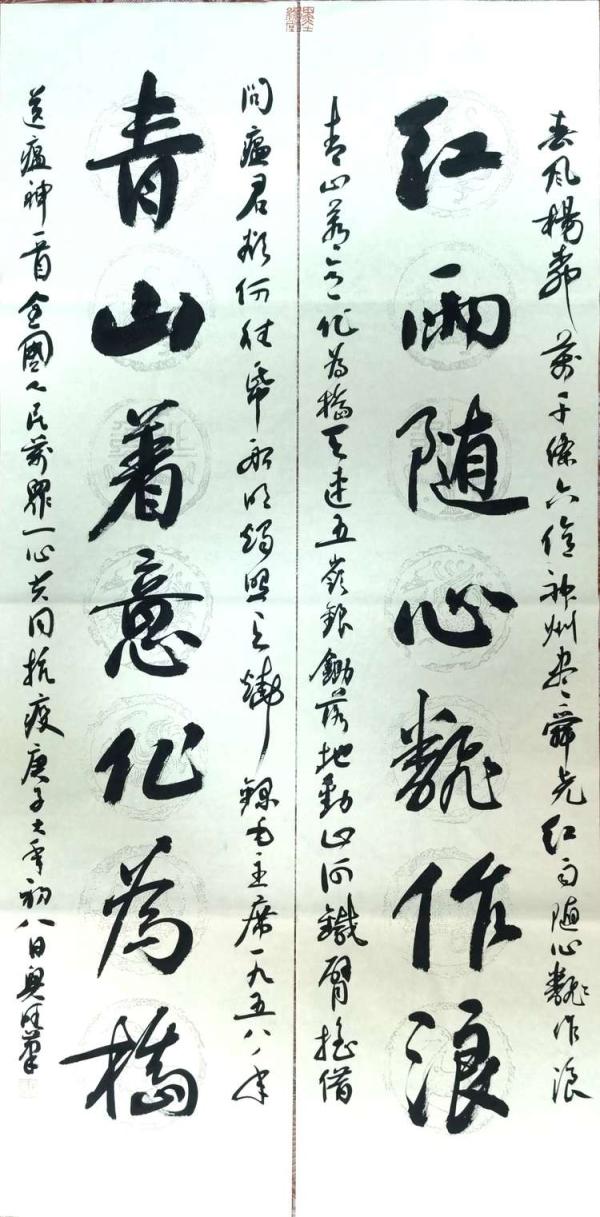 春风楊柳萬千條六億神州尽舜尧红雨随心翻作浪
红雨随心翻作浪
青山着意化為橋天連五嶺銀鋤落地動山河鐵臂摇借
問瘟君欲何往纸船明烛照天燒錄毛主席一九五八年
青山着意化為橋
送瘟神一首全國人民萬眾一心共同抗疫庚子大年初八日